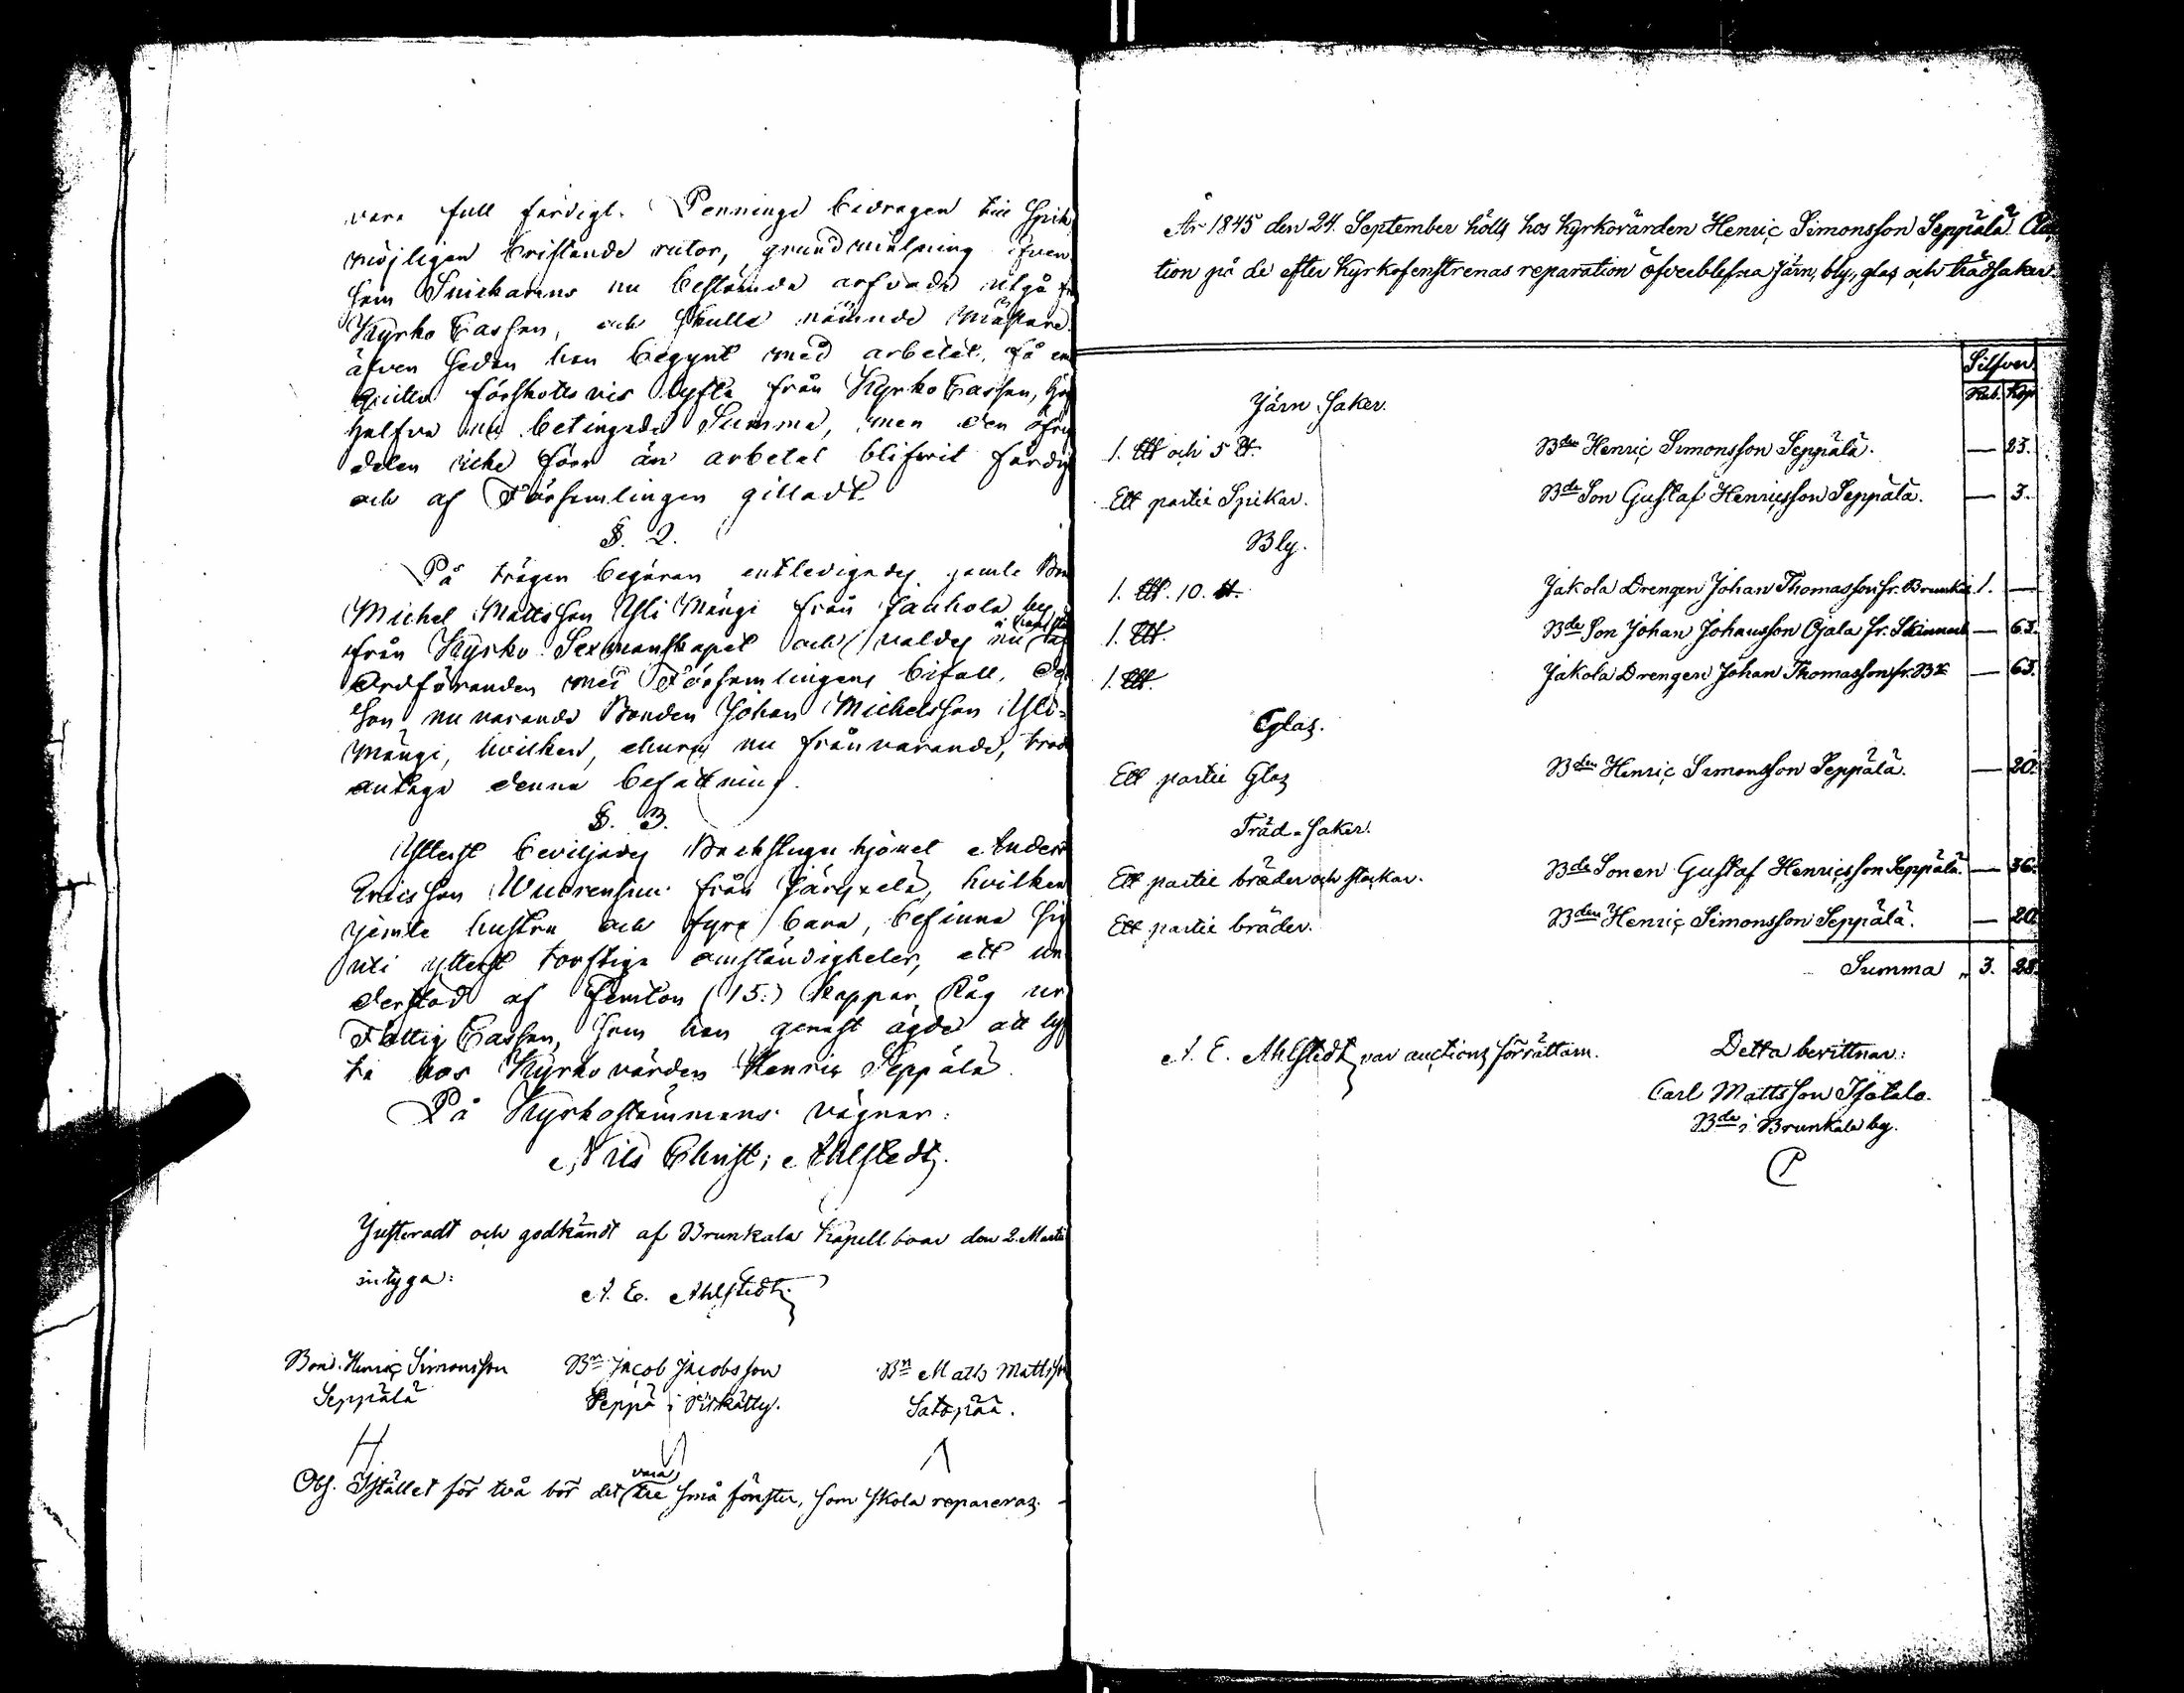 vara full färdigt. Penninge bidragen till Spik
möjligen bristande rutor, grundmålning äfven
som Snickarens nu bestämda arfvode utgå
Kyrko Cassen, och skulle nämnde Mästare
äfven sedan han begynt med arbetet, få em
qvitto förskottsvis lyfta från Kyrko Cassan,
halfva nu betingade Summa, men den öfri
delen icke förr än arbetet blifvit färdig
och af Församlingen gilladt.
§. 2.
På trägen begäran entledigades gamle Bon
Michel Mattsson Yli Mängi från Jauhola by
från Kyrko Sexmanskapet och valdes nu
Ordföranden med Församlingens bifall,
Son nu varande Bonden Johan Michelsson Yli-
Mängi, hvilken, ehuru nu frånvarande,
antaga denna befattning.
§. 3.
Ytterst beviljades Backstugu hjonet Anders
Ericsson Wuorensuu från Järyxelä, hvilken
jemte hustru och fyra barn, befinna sig
uti ytterst torftiga omständigheter, ett un
derstöd af Femton (15:) kappar Råg ur
Fattig Cassan, som han genast ägde att lyf
ta hos Kyrkovärden Henric Seppälä.
På Kyrkostämmans vägnar:
Nils Christ: Ahlstedt.
Justeradt och godkändt af Brunkala Kapellboar den 2. Martii
intyga:
A. E. Ahlstedt.
Bond. Henric Simonsson Bn Jacob Jacobsson Bn Matts Mattsson
Seppälä Seppä i Pitkäkby. Satopää.
H
Obs. Istället för två bör det vara tre små fönster, som skola repareras.
År 1845 den 24. September hölls hos Kyrkovärden Henric Simonsson Seppälä Auc
tion på de efter Kyrkofenstrenas reparation öfverblefna Järn, bly, glas och trädsaker.
Silfver.
Rub. Kop
Järn Saker.
1. LU och 5 U. Bden Henric Simonsson Seppälä. — 23.
Ett partie Spikar. Bde Son Gustaf Henricsson Seppälä. — 3.
Bly.
1. LU. 10. U. Jakola Drengen Johan Thomasson fr. Brunkala 1. —
1. LU. Bde Son Johan Johansson Ojala fr. — 63.
1. LU. Jakola Drengen Johan Thomasson fr. Bk — 63.
Glas.
Ett partie Glas Bden Henric Simonsson Seppälä. — 20.
Träd-Saker.
Ett partie bräder och stockar. Bde Sonen Gustaf Henricsson Seppälä. — 36.
Ett partie bräder. Bden Henric Simonsson Seppälä. — 20.
Summa „ 3. 28.
A. E. Ahlstedt var auctions förrättare. Detta bevittnar:
Carl Mattsson Isotalo.
Bde i Brunkala by.